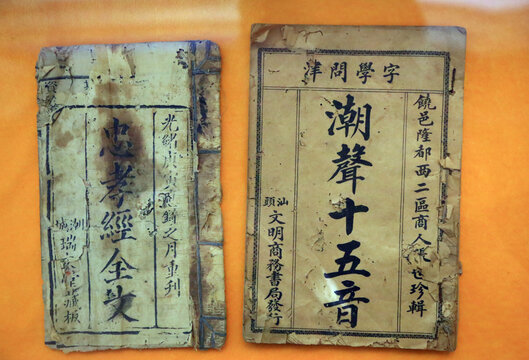 字學問津
饒邑隆都西二區商人張世珍輯
潮聲十五音
汕頭
文明商務書局發行
光緒庚寅之月重刊
忠孝經全文
城瑞藏板